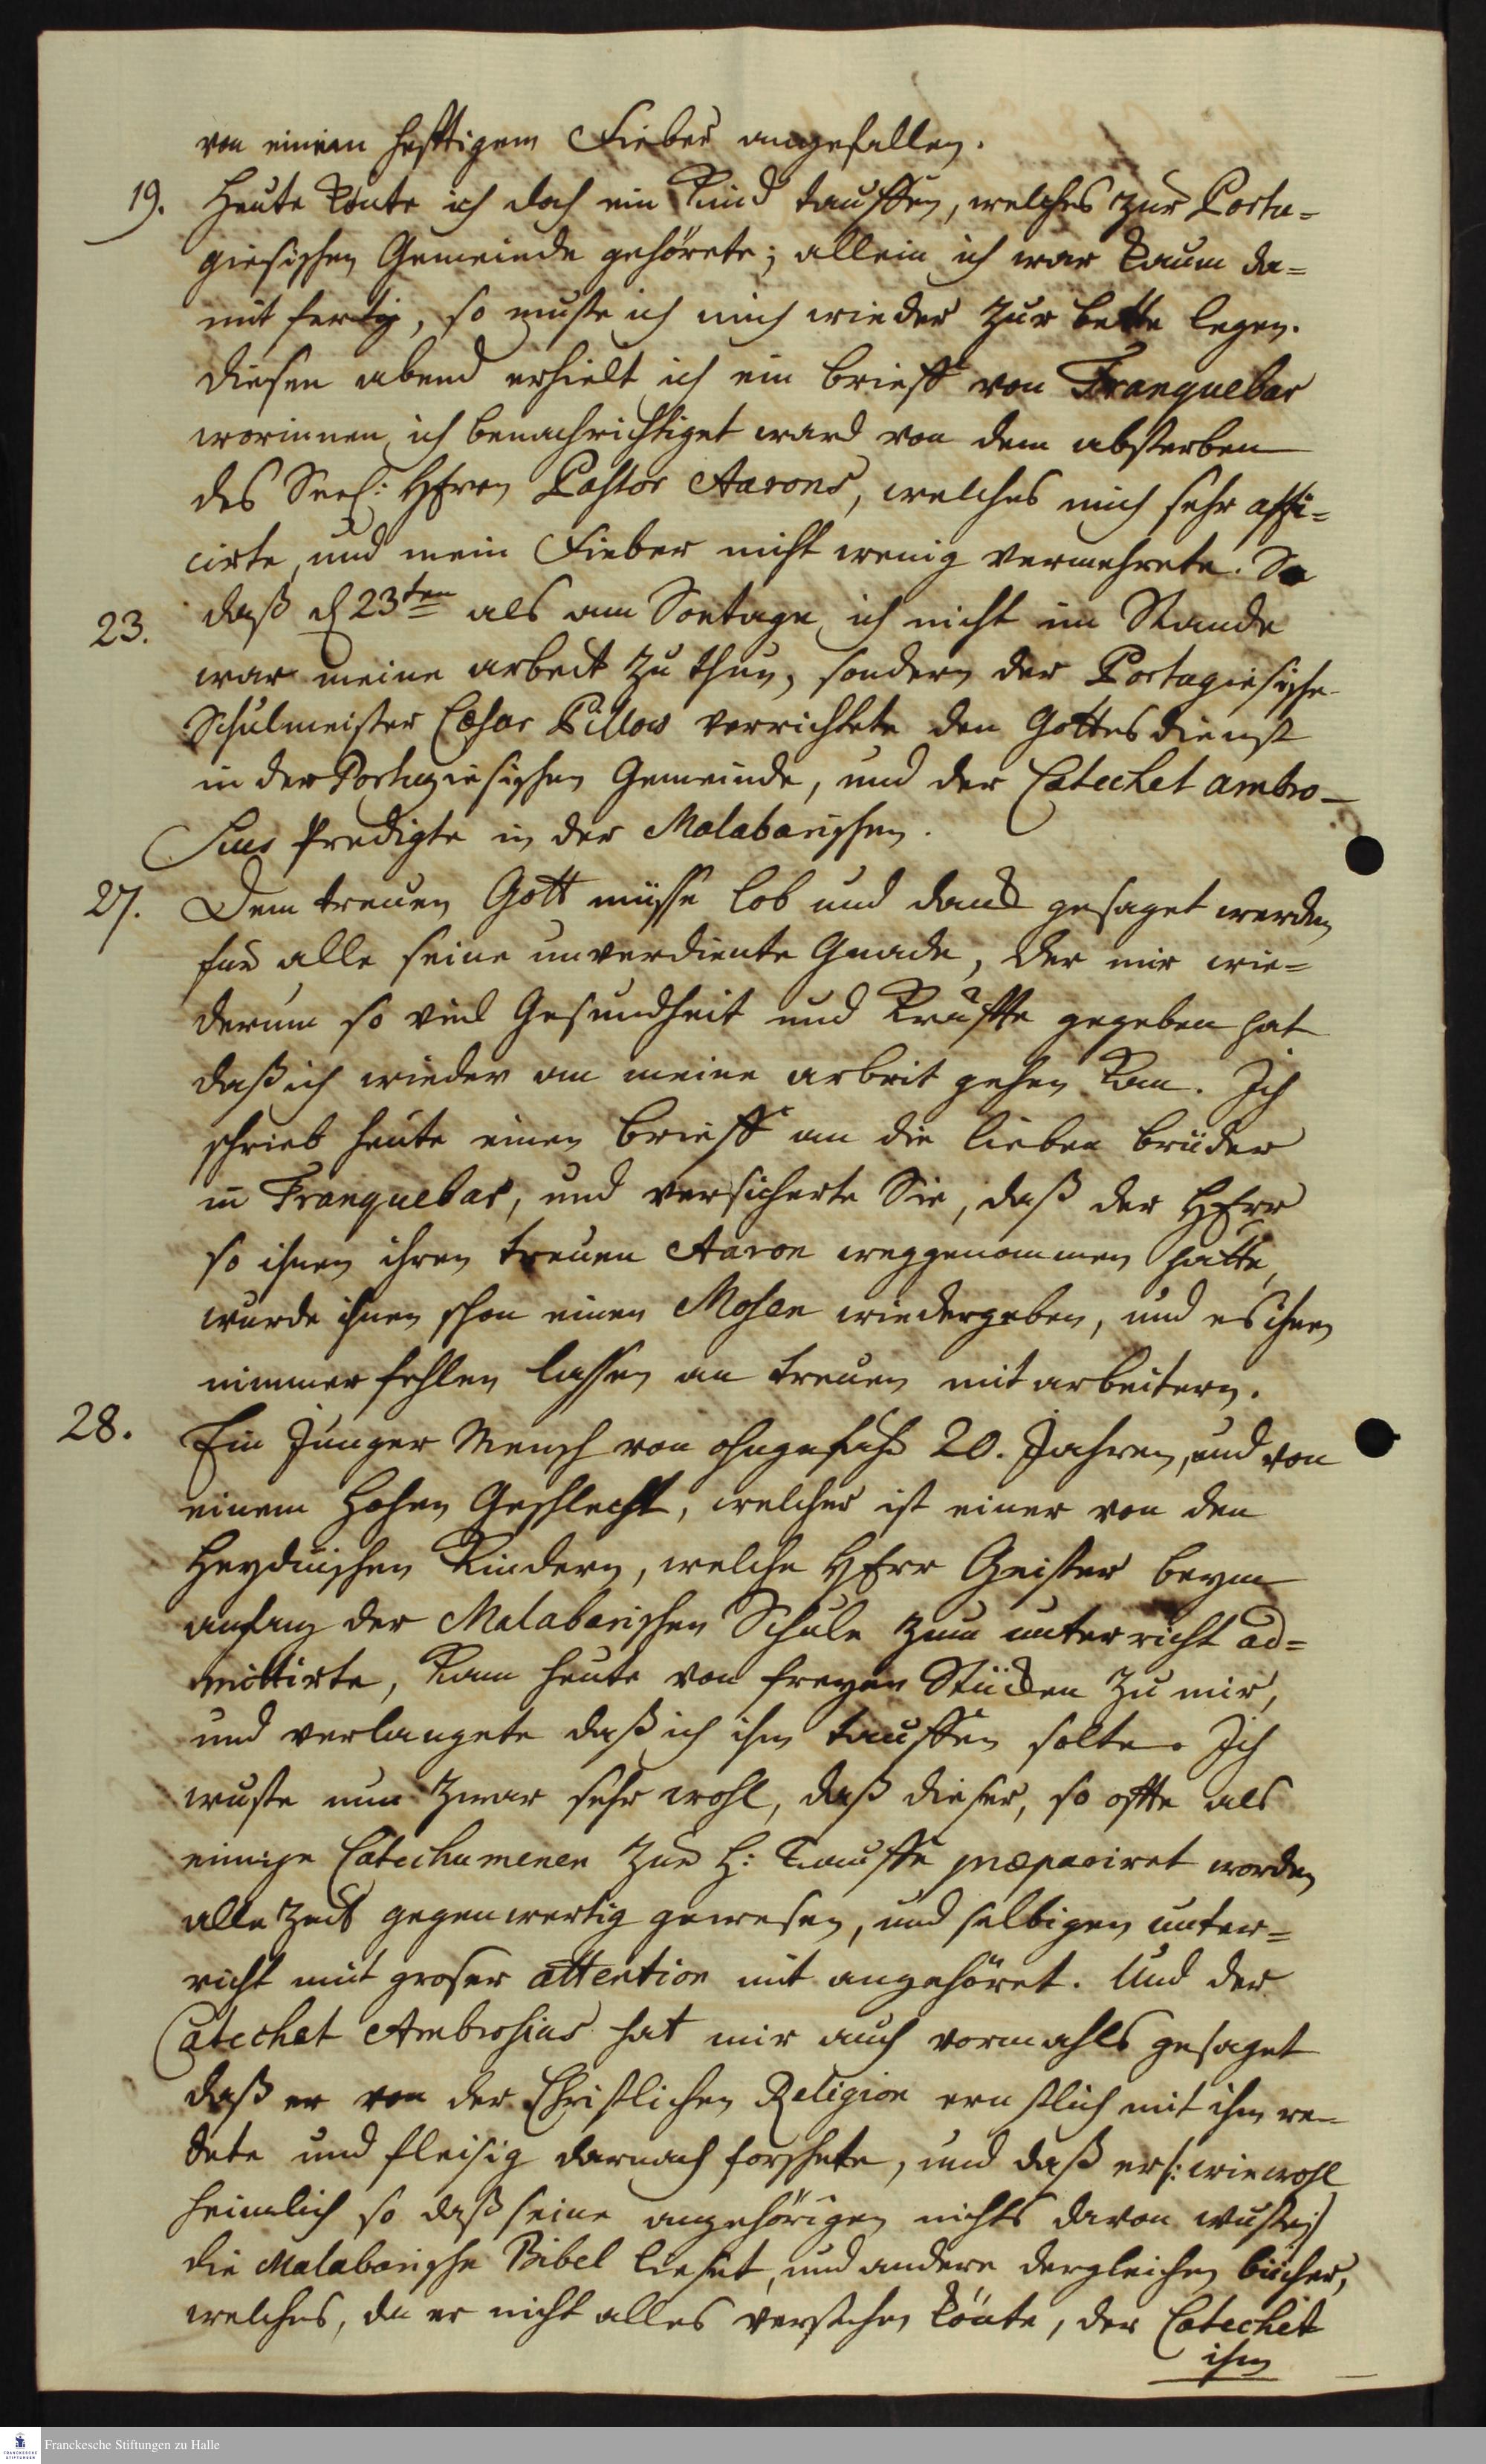 von einem hefftigem Fieber angefallen.
19. Heute konte ich doch ein Kind tauffen, welches zur Portu=
giesischen Gemeinde gehörete; allein ich war kaum da=
mit fertig, so muste ich mich wieder zur bette legen.
diesen abend erhielt ich ein brieff von Tranquebar
worinnen ich benachrichtiget ward von dem absterben
des Seel: HErrn Pastor Aarons, welches mich sehr affi=
cirte, und mein Fieber nicht wenig vermehrete. So
23. daß d 23ten als am Sontage, ich nicht im Stande
war meine arbeit zu thun, sondern der Portugiesische
Schulmeister Cæsar Pillow verrichtete den Gottesdienst
in der Portugiesischen Gemeinde, und der Catechet Ambro-
sius Predigte in der Malabarischen.
27. Dem treuen Gott müsse lob und danck gesaget werden
für alle seine unverdiente Gnade, der mir wie=
derum so viel Gesundheit und Kräffte gegeben hat
daß ich wieder an meine arbeit gehen kan. Ich
schrieb heute einen brieff an die lieben brüder
in Tranquebar, und versicherte Sie, daß der HErr
so ihnen ihren treuen Aaron weggenommen hatte,
wurde ihnen schon einen Mosen wiedergeben, und es ihnen
nimmer fehlen lassen an treuen mit arbeitern.
28. Ein junger Mensch von ohngefehr 20. Jahren, und von
einem hohen Geschlecht, welcher ist einer von den
Heydnischen Kindern, welche HErr Geister beym
anfang der Malabarischen Schule zum unterricht ad=
mittirte, kam heute von freyen Stücken zu mir,
und verlangete daß ich ihn tauffen solte. Ich
wuste nun zwar sehr wohl, daß dieser, so offte als
einige Catechumenen zur H: Tauffe præpariret worden
alle Zeit gegenwertig gewesen, und selbigen unter=
richt mit groser attention mit angehöret. Und der
Catechet Ambrosius hat mir auch vormahls gesaget
daß er von der Christlichen Religion ernstlich mit ihm re-
dete und fleisig darnach forschete, und daß er /: wiewohl
heimlich so daß seine angehörigen nichts davon wusten :/
die Malabarische Bibel lieset, und andere dergleichen bücher,
welches, da er nicht alles verstehen könte, der Catechet
ihm
Franckesche Stiftungen zu Halle